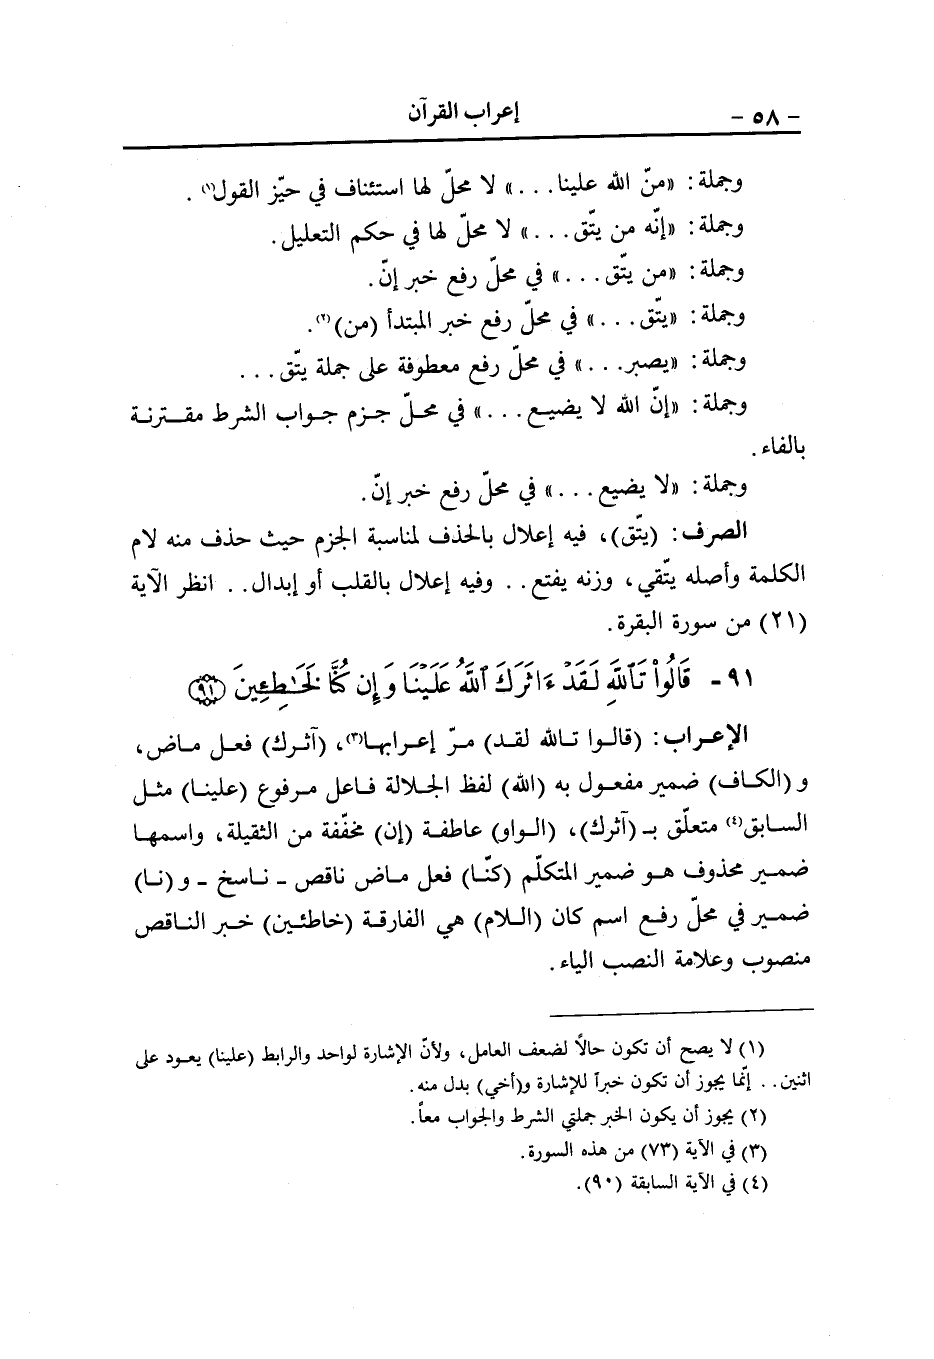 - ٥٨ -
إعراب القرآن
وجملة: «منّ الله علينا...» لا محلّ لها استئناف في حيّز القول(١).
وجملة: «إنّه من يتّق...» لا محلّ لها في حكم التعليل.
وجملة: «من يتّق...» في محلّ رفع خبر إنّ.
وجملة: «يتّق...» في محلّ رفع خبر المبتدأ (من)(٢).
وجملة: «يصبر...» في محلّ رفع معطوفة على جملة يتّق...
وجملة: «إنّ الله لا يضيع...» في محلّ جزم جواب الشرط مقترنة
بالفاء.
وجملة: «لا يضيع...» في محلّ رفع خبر إنّ.
الصرف: (يتّق)، فيه إعلال بالحذف لمناسبة الجزم حيث حذف منه لام
الكلمة وأصله يتّقي، وزنه يفتع.. وفيه إعلال بالقلب أو إبدال.. انظر الآية
(٢١) من سورة البقرة.
٩١- قَالُواْ تَٱللَّهِ لَقَدْ ءَاثَرَكَ ٱللَّهُ عَلَيْنَا وَإِن كُنَّا لَخَٰطِـِٔينَ ﴿٩١﴾
الإعراب: (قالوا تالله لقد) مرّ إعرابها(٣)، (آثرك) فعل ماض،
و (الكاف) ضمير مفعول به (الله) لفظ الجلالة فاعل مرفوع (علينا) مثل
السابق(٤) متعلّق بـ (آثرك)، (الواو) عاطفة (إن) مخفّفة من الثقيلة، واسمها
ضمير محذوف هو ضمير المتكلّم (كنّا) فعل ماض ناقص - ناسخ - و (نا)
ضمير في محلّ رفع اسم كان (اللام) هي الفارقة (خاطئين) خبر الناقص
منصوب وعلامة النصب الياء.
(١) لا يصح أن تكون حالاً لضعف العامل، ولأنّ الإشارة لواحد والرابط (علينا) يعود على
اثنين.. إنّما يجوز أن تكون خبراً للإشارة و(أخي) بدل منه.
(٢) يجوز أن يكون الخبر جملتي الشرط والجواب معاً.
(٣) في الآية (٧٣) من هذه السورة.
(٤) في الآية السابقة (٩٠).